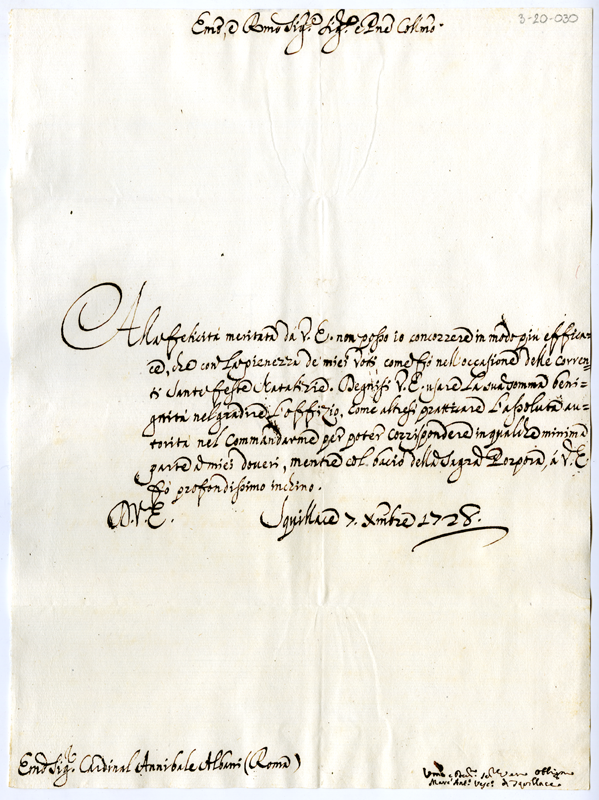 3-20-030
Emo, e Rmo Sig.r Sig.r e Pne Collmo.
Alla felicità meritata da V. E. non posso io concorrere in modo più effica=
ce, che con la pienezza de miei voti come fò nell'occasione delle corren=
ti Sante feste Natalizie. Degnisi V. E. usare la sua somma beni=
gnità nel gradire l'offizio, come altresì pratticare l'assoluta au=
torità nel commandarme per poter corrispondere in qualche minima
parte à miei doveri, mentre col bacio della Sagra Porpora, à V. E.
fò profondissimo inchino.
D. V. E. Squillace 7. Xmbre 1728.
Emo Sig.r Cardinal Annibale Albani (Roma)
Umo e obligmo
Marc' Ant.o Vesc.o di Squillace